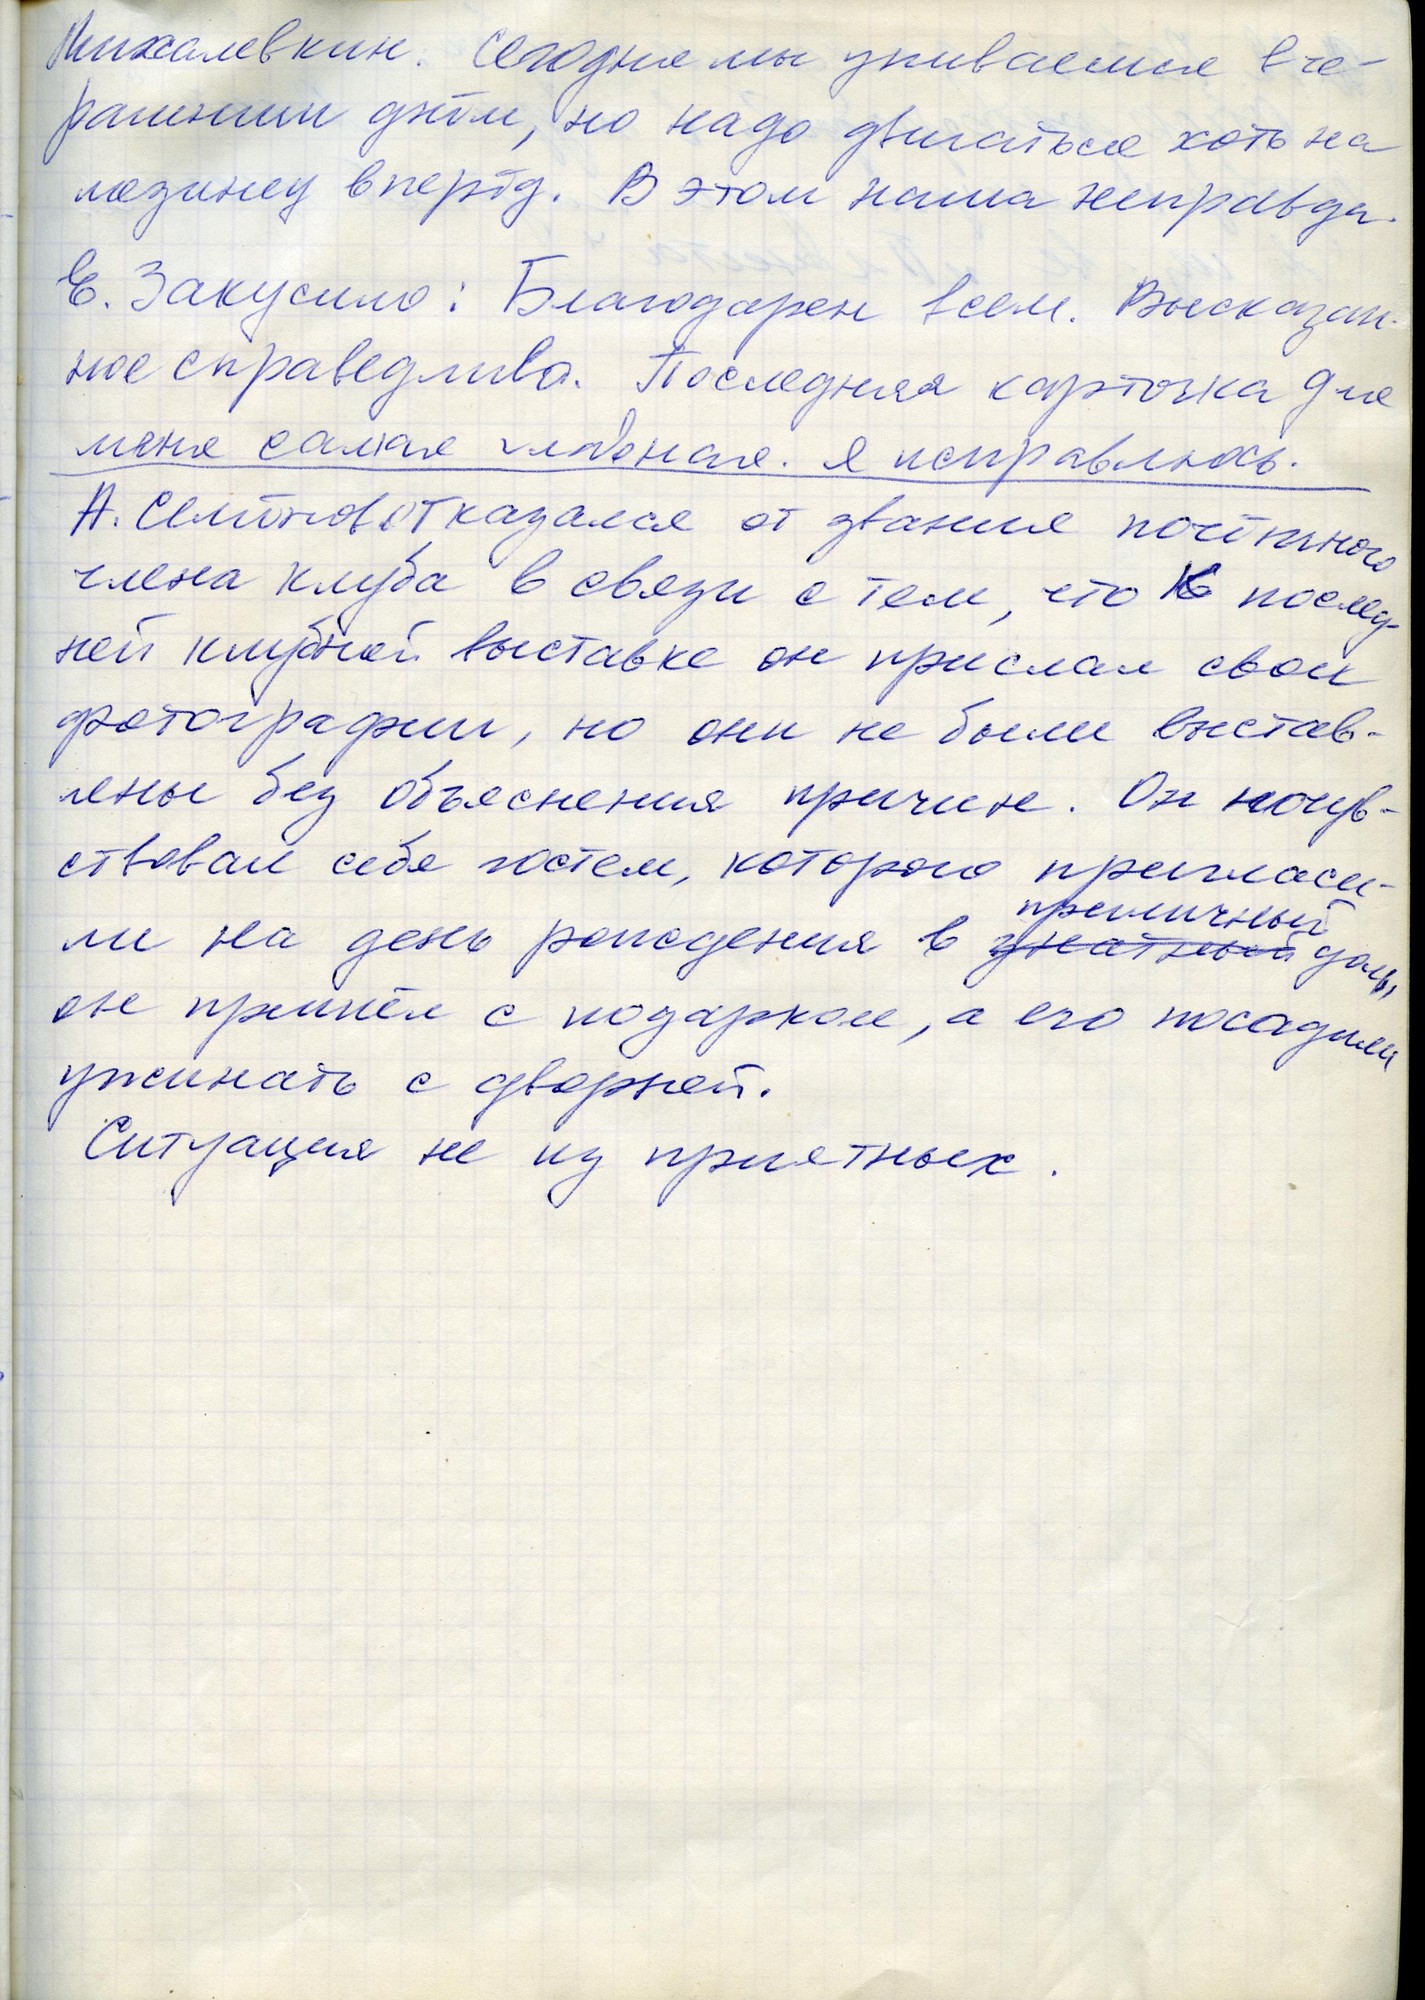 Михалевкин. Сегодня мы упиваемся вче-
рашним днём, но надо двигаться хоть на
мизинец вперёд. В этом наша неправда.
Е. Закусило: Благодарен всем. Высказан-
ное справедливо. Последняя карточка для
меня самая главная. Я исправлюсь.
А. Семёнов отказался от звания почётного
члена клуба в связи с тем, что к послед-
ней клубной выставке он прислал свои
фотографии, но они не были выстав-
лены без объяснения причин. Он почув-
ствовал себя гостем, которого пригласи-
приличный
ли на день рождения в знатный дом,
он пришёл с подарком, а его посадили
ужинать с дворней.
Ситуация не из приятных.